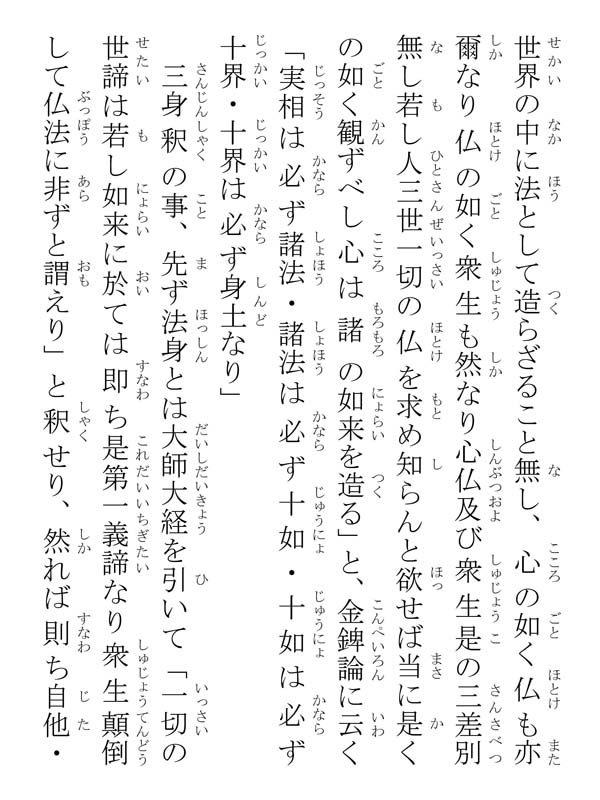 世界の中に法として造らざること無し、心の如く仏も亦
爾なり仏の如く衆生も然なり心仏及び衆生是の三差別
無し若し人三世一切の仏を求め知らんと欲せば当に是く
の如く観ずべし心は諸の如来を造る」と、金錍論に云く
「実相は必ず諸法・諸法は必ず十如・十如は必ず
十界・十界は必ず身土なり」
三身釈の事、先ず法身とは大師大経を引いて「一切の
世諦は若し如来に於ては即ち是第一義諦なり衆生顛倒
して仏法に非ずと謂えり」と釈せり、然れば則ち自他・